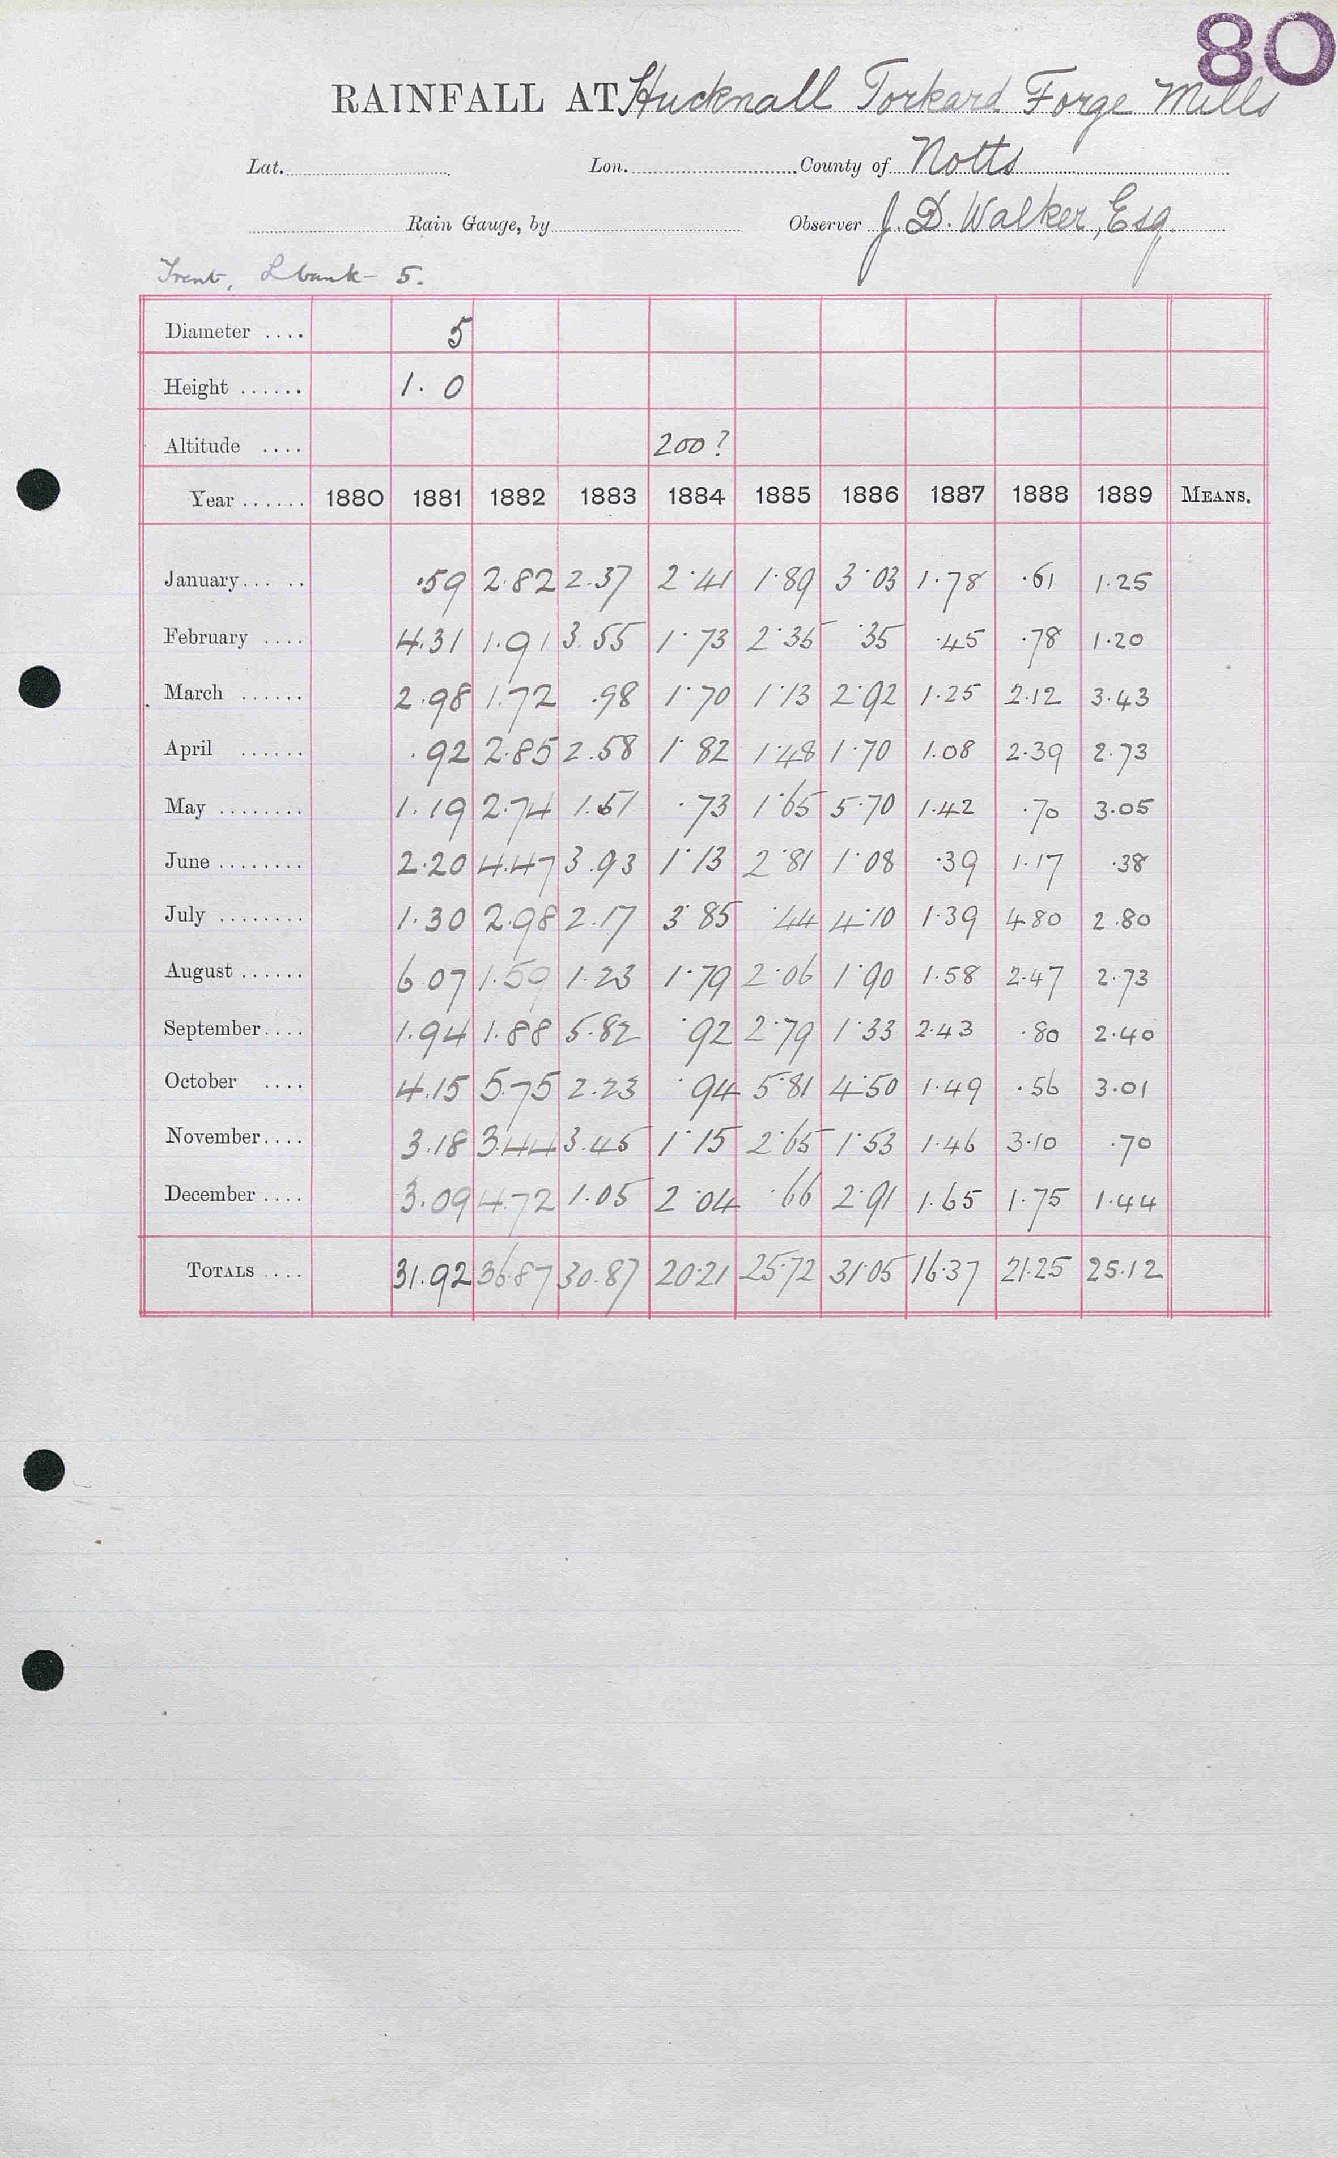 80
RAINFALL AT Hucknall Torkard Forge Mills
Lat. Lon. County of Notts
Rain Gauge, by Observer J. D. Walker, Esq
Trent, L bank - 5.
Diameter .... 5
Height ...... 1. 0
Altitude .... 200?
Year ...... 1880 1881 1882 1883 1884 1885 1886 1887 1888 1889 MEANS.
January ... .. .59 2.82 2.37 2.41 1.89 3.03 1.78 .61 1.25
February .... 4.31 1.91 3.55 1.73 2.35 .35 .45 .78 1.20
March ...... 2.98 1.72 .98 1.70 1.13 2.92 1.25 2.12 3.43
April ...... .92 2.85 2.58 1.82 1.48 1.70 1.08 2.39 2.73
May ........ 1.19 2.74 1.51 .73 1.65 5.70 1.42 .70 3.05
June ........ 2.20 4.47 3.93 1.13 2.81 1.08 .39 1.17 .38
July ........ 1.30 2.98 2.17 3.85 .44 4.10 1.39 4.80 2.80
August ...... 6.07 1.59 1.23 1.79 2.06 1.90 1.58 2.47 2.73
September .... 1.94 1.88 5.82 .92 2.79 1.33 2.43 .80 2.40
October .... 4.15 5.75 2.23 .94 5.81 4.50 1.49 .56 3.01
November .... 3.18 3.44 3.45 1.15 2.65 1.53 1.46 3.10 .70
December .... 3.09 4.72 1.05 2.04 .66 2.91 1.65 1.75 1.44
TOTALS .... 31.92 36.87 30.87 20.21 25.72 31.05 16.37 21.25 25.12